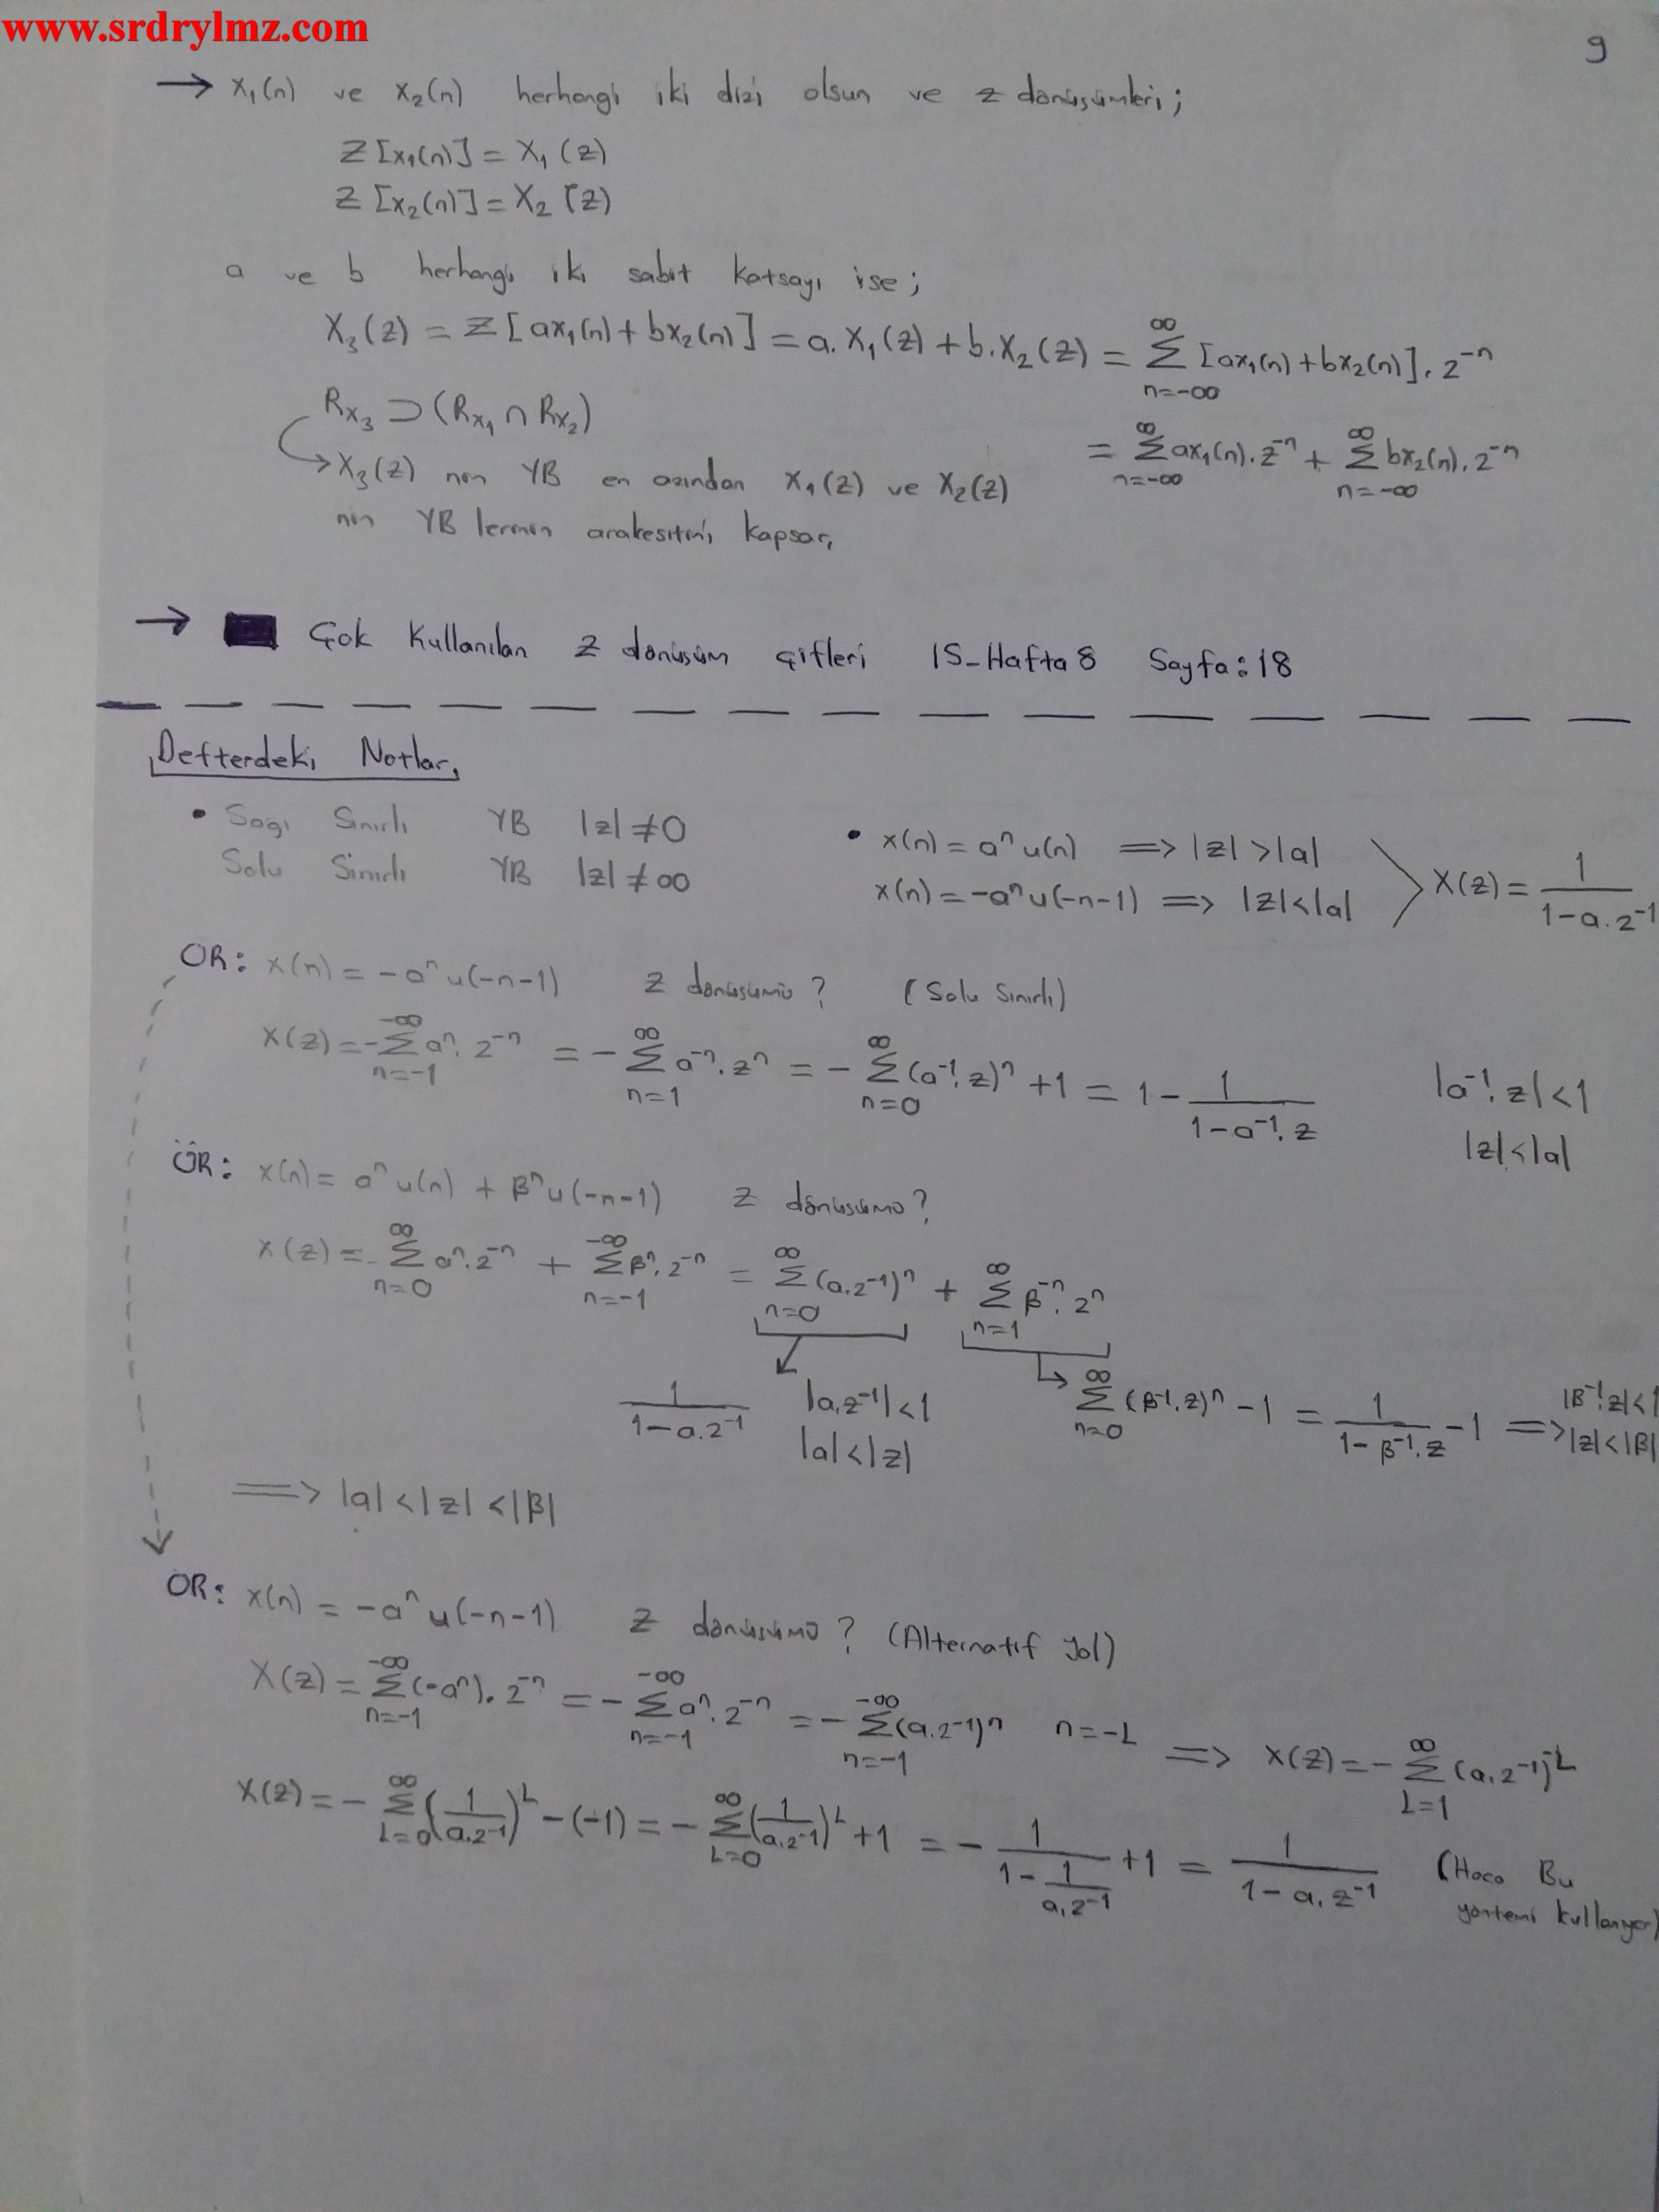 www.srdrylmz.com
9
→ x₁(n) ve x₂(n) herhangi iki dizi olsun ve z dönüşümleri;
Z[x₁(n)] = X₁(z)
Z[x₂(n)] = X₂(z)
a ve b herhangi iki sabit katsayı ise;
X₃(z) = Z[ax₁(n) + bx₂(n)] = a.X₁(z) + b.X₂(z) = ∑_{n=-∞}^{∞} [ax₁(n) + bx₂(n)].z⁻ⁿ
= ∑_{n=-∞}^{∞} ax₁(n).z⁻ⁿ + ∑_{n=-∞}^{∞} bx₂(n).z⁻ⁿ
R_{X₃} ⊃ (R_{X₁} ∩ R_{X₂})
↳ X₃(z) nin YB en azından X₁(z) ve X₂(z)
nin YB lerinin arakesitini kapsar.
→ Çok Kullanılan z dönüşüm çiftleri IS-Hafta8 Sayfa:18
Defterdeki Notlar
• Sağı Sınırlı YB |z| ≠ 0
Solu Sınırlı YB |z| ≠ ∞
• x(n) = aⁿu(n) ⟹ |z| > |a|
x(n) = -aⁿu(-n-1) ⟹ |z| < |a|
X(z) = 1/(1-a.z⁻¹)
ÖR: x(n) = -aⁿu(-n-1) z dönüşümü? (Solu sınırlı)
X(z) = -∑_{n=-1}^{-∞} aⁿ.z⁻ⁿ = -∑_{n=1}^{∞} a⁻ⁿ.zⁿ = -∑_{n=0}^{∞} (a⁻¹.z)ⁿ + 1 = 1 - 1/(1-a⁻¹.z) |a⁻¹.z| < 1
|z| < |a|
ÖR: x(n) = aⁿu(n) + βⁿu(-n-1) z dönüşümü?
X(z) = ∑_{n=0}^{∞} aⁿ.z⁻ⁿ + ∑_{n=-1}^{-∞} βⁿ.z⁻ⁿ = ∑_{n=0}^{∞} (a.z⁻¹)ⁿ + ∑_{n=1}^{∞} β⁻ⁿ.zⁿ
1/(1-a.z⁻¹) |a.z⁻¹| < 1
|a| < |z|
↳ ∑_{n=0}^{∞} (β⁻¹.z)ⁿ - 1 = 1/(1-β⁻¹.z) - 1 ⟹ |β⁻¹.z| < 1
|z| < |β|
⟹ |a| < |z| < |β|
ÖR: x(n) = -aⁿu(-n-1) z dönüşümü? (Alternatif yol)
X(z) = ∑_{n=-1}^{-∞} (-aⁿ).z⁻ⁿ = -∑_{n=-1}^{-∞} aⁿ.z⁻ⁿ = -∑_{n=-1}^{-∞} (a.z⁻¹)ⁿ n=-L ⟹ X(z) = -∑_{L=1}^{∞} (a.z⁻¹)^{-L}
X(z) = -∑_{L=0}^{∞} (1/(a.z⁻¹))^L - (-1) = -∑_{L=0}^{∞} (1/(a.z⁻¹))^L + 1 = -1/(1 - 1/(a.z⁻¹)) + 1 = 1/(1-a.z⁻¹) (Hoca Bu
yöntemi kullanıyor)